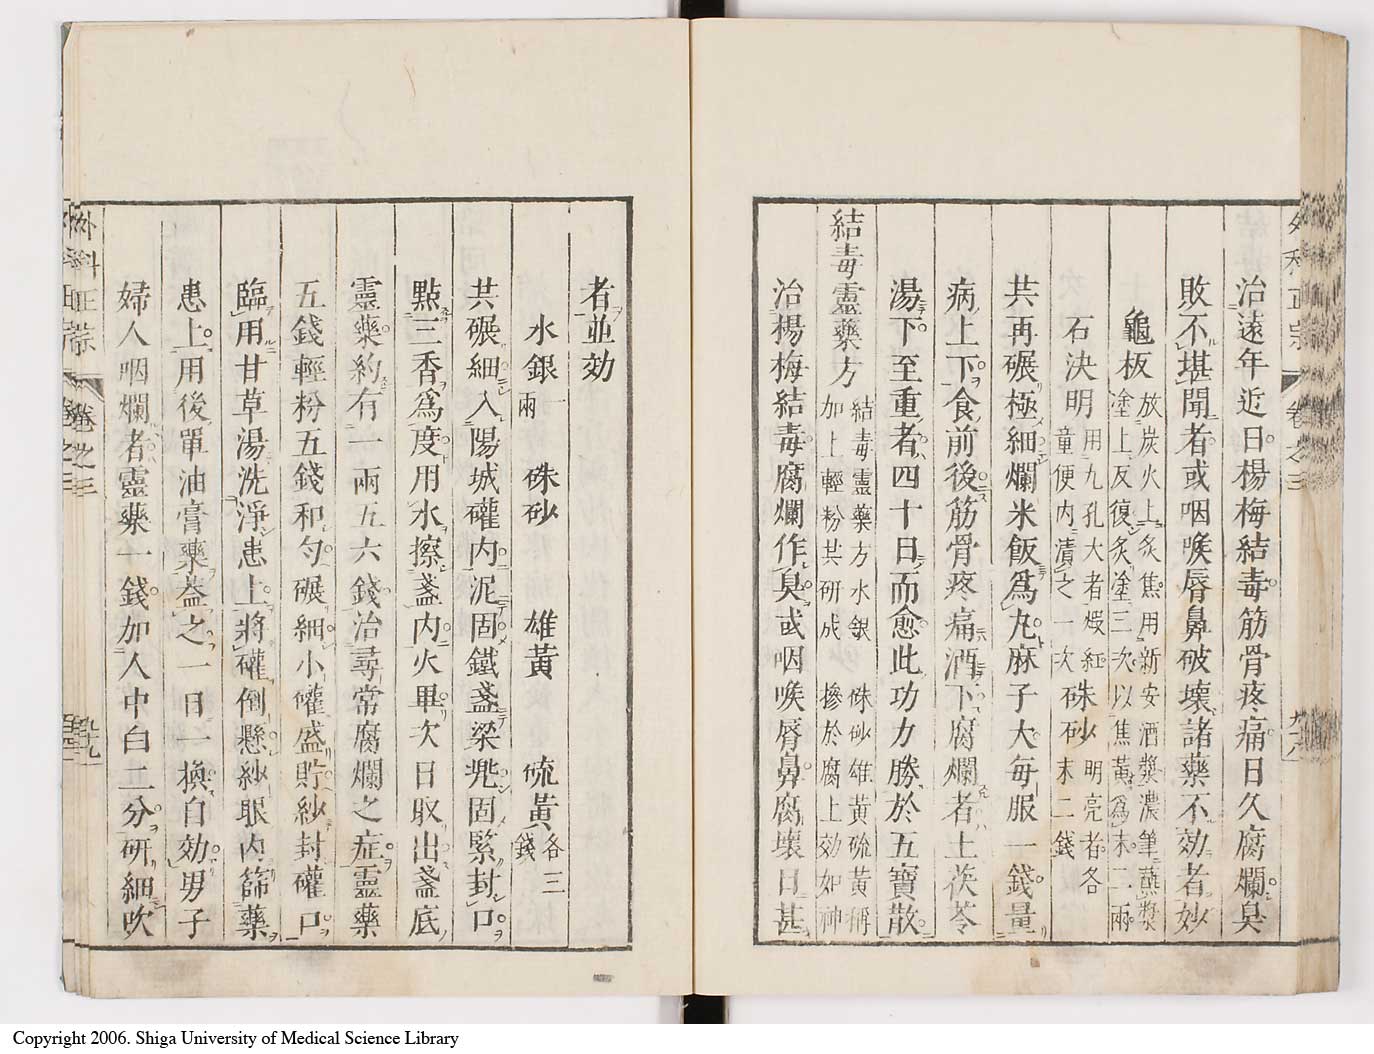 外科正宗 卷之三 九十八
治遠年近日楊梅結毒筋骨疼痛日久腐爛臭
敗不堪聞者或咽喉唇鼻破壞諸藥不効者妙
龜板 放炭火上炙焦用新安酒漿濃筆蘸漿
塗上反復炙塗三次以焦黃爲末二兩
石決明 用九孔大者煅紅
童便內漬之一次 硃砂 明亮者各
末二錢
共再碾極細爛米飯爲丸麻子大每服一錢量
病上下食前後筋骨疼痛酒下腐爛者土茯苓
湯下至重者四十日而愈此功力勝於五寶散
結毒靈藥方 結毒靈藥方水銀 硃砂雄黃硫黃稱
加上輕粉共研成 摻於腐上效如神
治楊梅結毒腐爛作臭或咽喉唇鼻腐壞日甚
者並効
水銀 一
兩 硃砂 雄黃 硫黃 各三
錢
共碾細入陽城礶內泥固鐵盞梁兠固緊封口
點三香爲度用水擦盞內火畢次日取出盞底
靈藥約有一兩五六錢治尋常腐爛之症靈藥
五錢輕粉五錢和勻碾細小礶盛貯紗封礶口
臨用甘草湯洗淨患上將礶倒懸紗眼內篩藥
患上用後單油膏藥葢之一日一換自効男子
婦人咽爛者靈藥一錢加人中白二分研細吹
外科正宗 卷之三 九十九